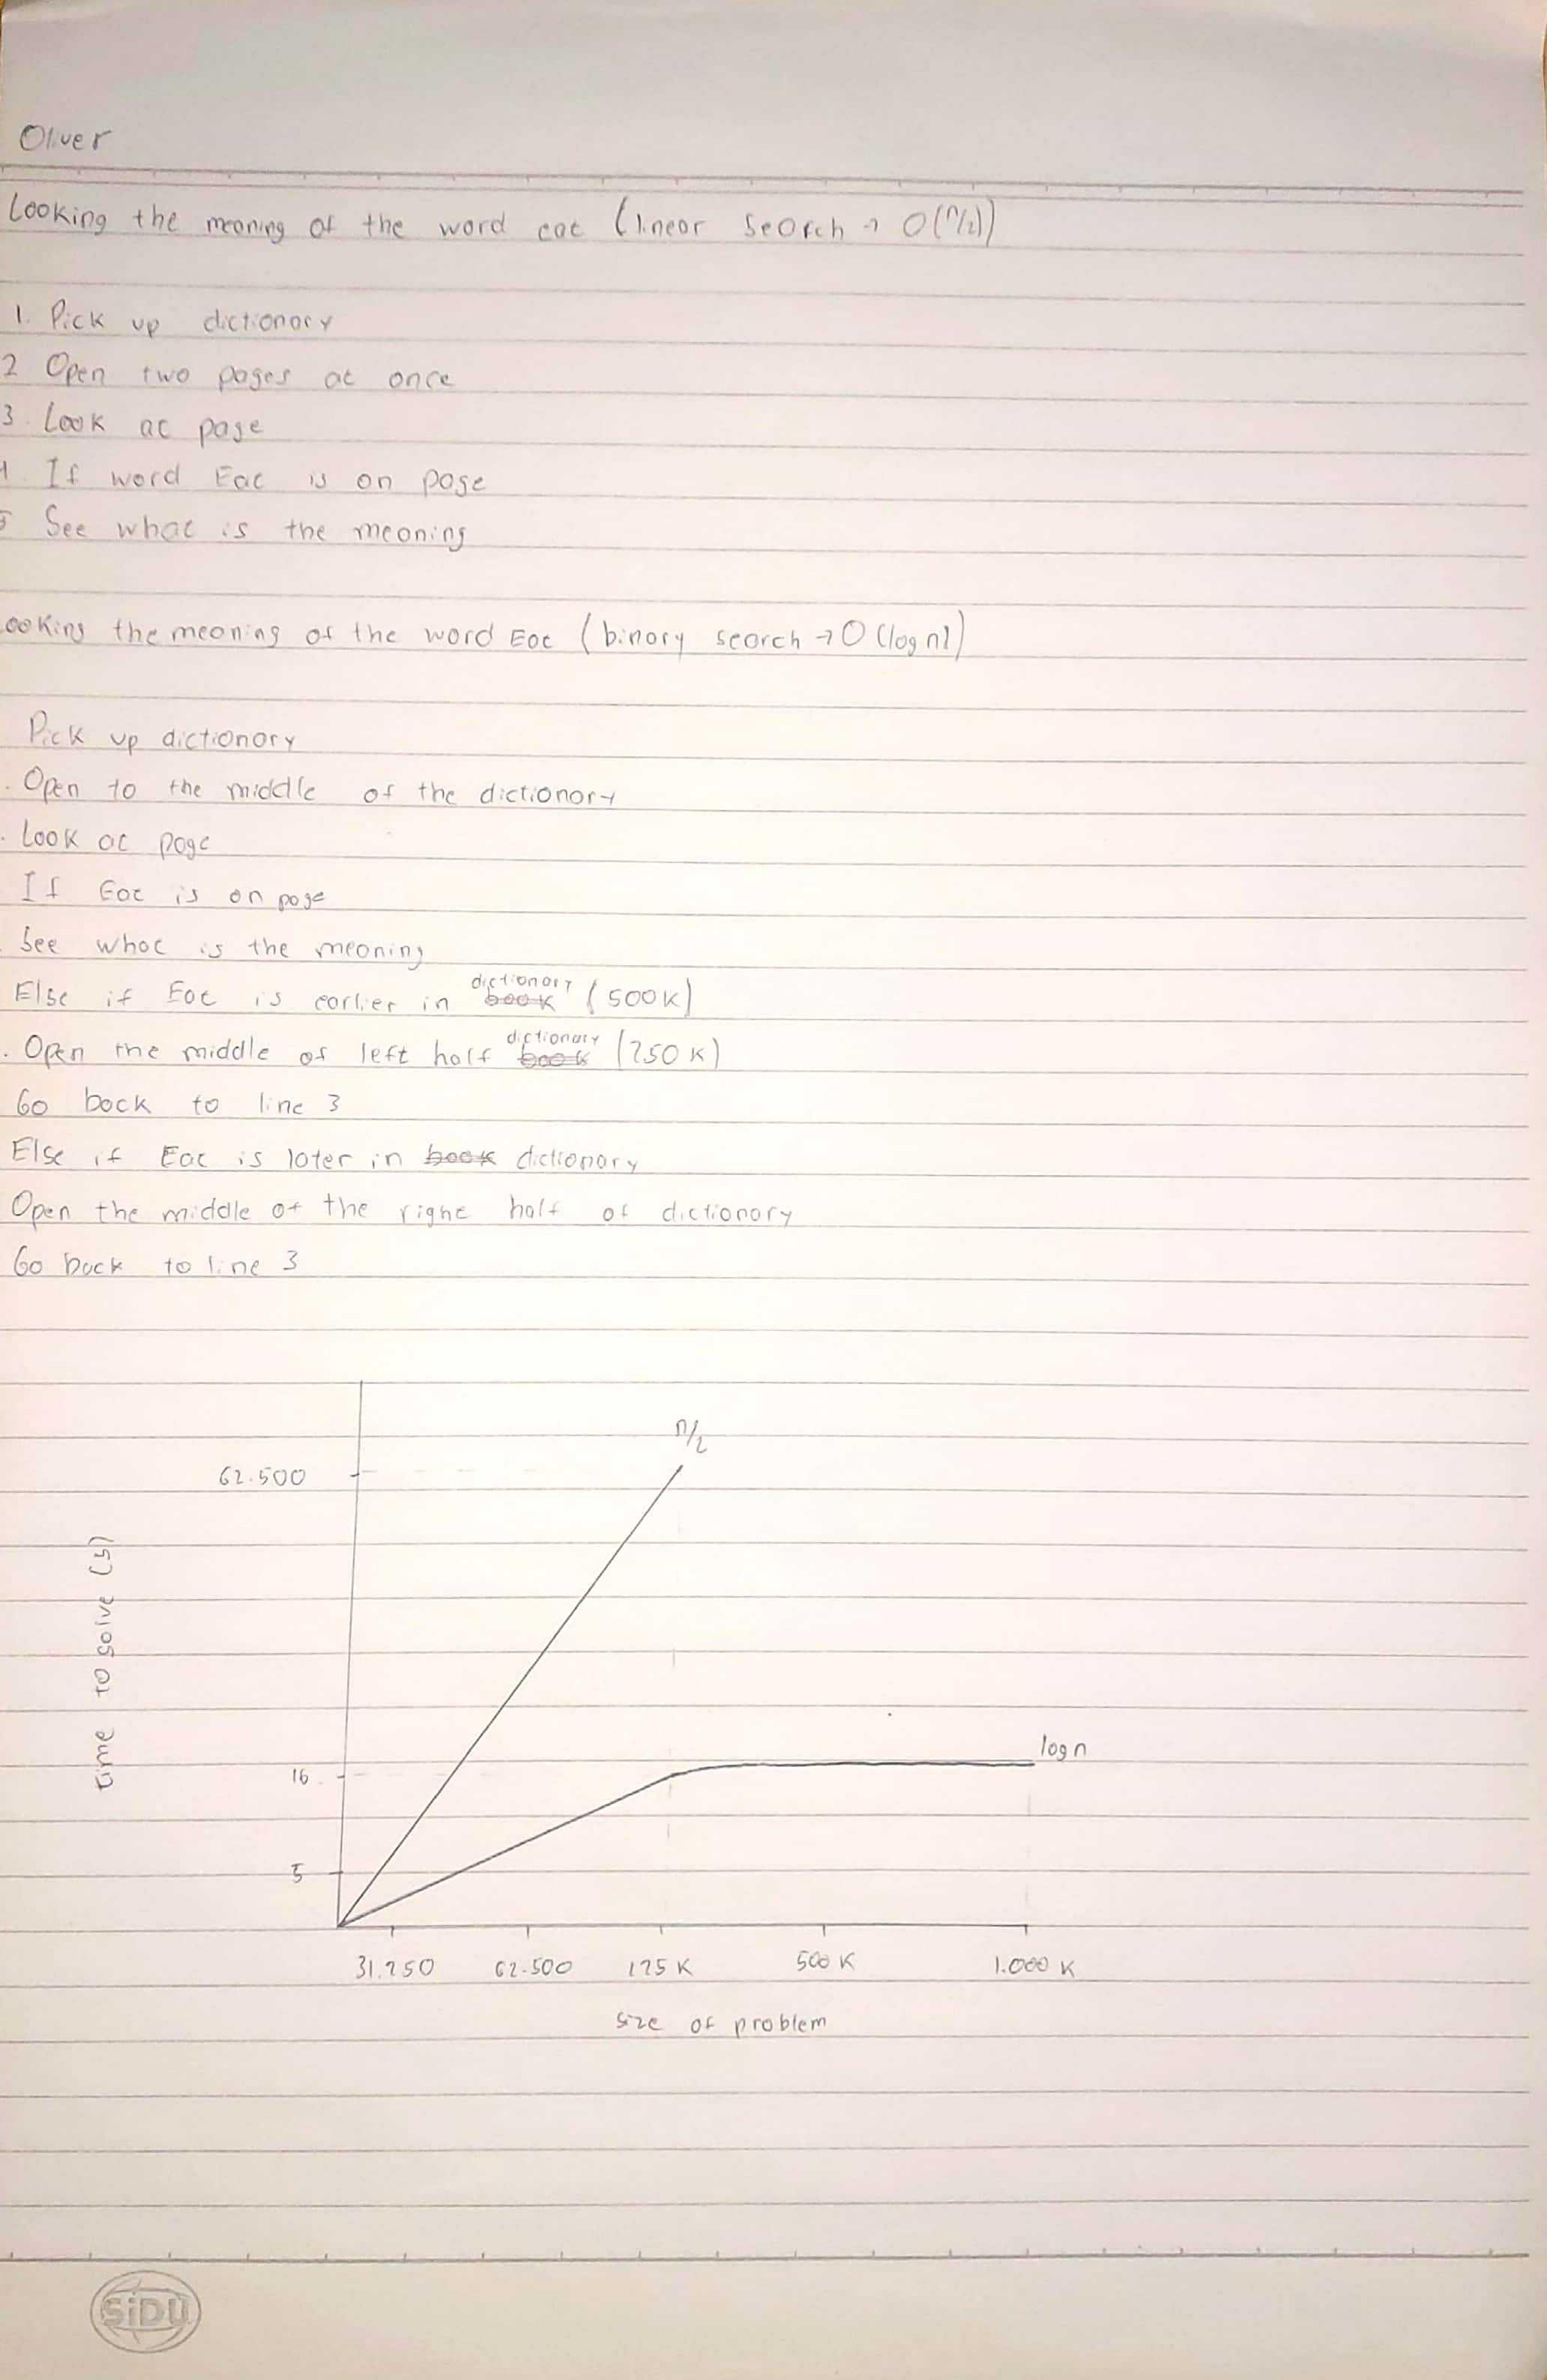 Oliver
Looking the meaning of the word eat (linear search → O(n/2))
1. Pick up dictionary
2 Open two pages at once
3. Look at page
4. If word Eat is on page
5 See what is the meaning
ooking the meaning of the word Eat (binary search → O(log n))
Pick up dictionary
. Open to the middle of the dictionary
. Look at page
If Eat is on page
. See what is the meaning
Else if Eat is earlier in book dictionary (500K)
. Open the middle of left half book dictionary (250K)
Go back to line 3
Else if Eat is later in book dictionary
Open the middle of the right half of dictionary
Go back to line 3
n/2
62.500
time to solve (s)
log n
16
5
31.250 62.500 125 K 500 K 1.000 K
size of problem
SiDU